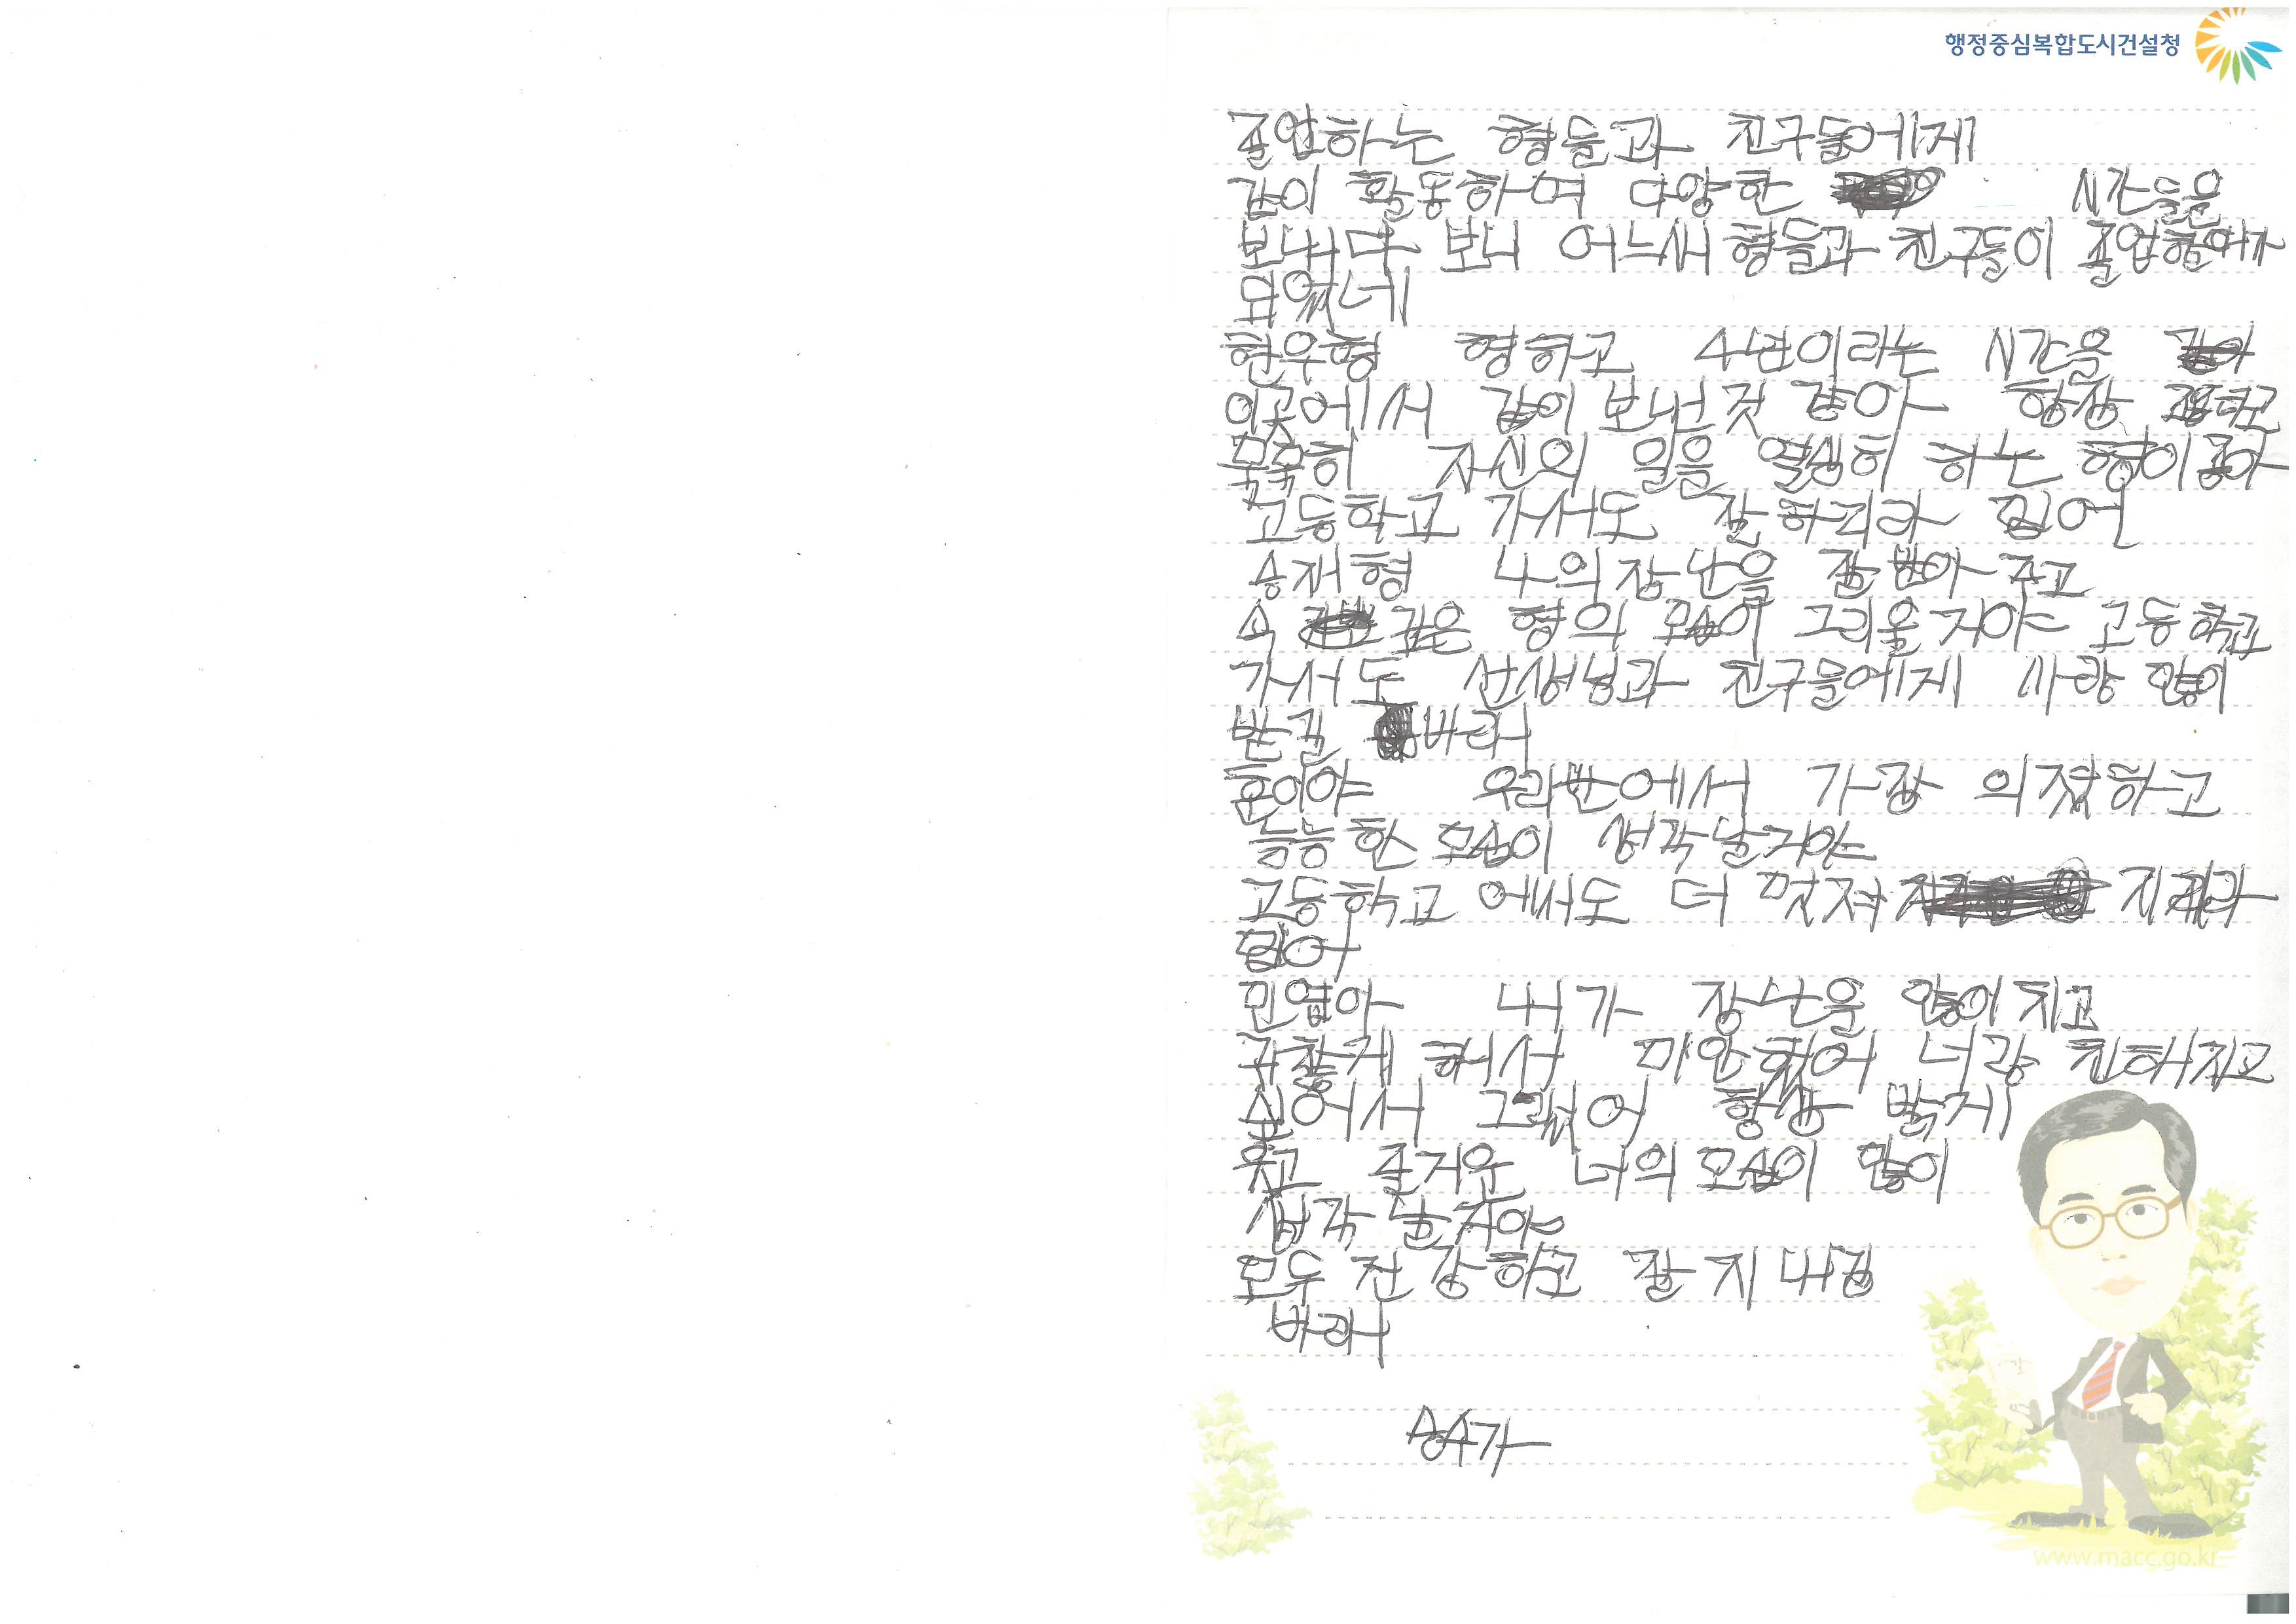 행정중심복합도시건설청
졸업하는 형들과 친구들에게
같이 활동하여 다양한 시간들을
보내다 보니 어느새 형들과 친구들이 졸업할때가
되었네
현우형 형하고 4년이라는 시간을
이곳에서 같이 보낸것 같아 항상
묵묵히 자신의 일을 열심히 하는 형이 좋아
고등학교 가서도 잘 하리라 믿어
승재형 나의 장난을 잘 받아 주고
속 깊은 형의 모습이 그리울 거야 고등학교
가서도 선생님과 친구들에게 사랑 많이
받길 바래
훈이야 우리반에서 가장 의젓하고
늠능한 모습이 생각 날거야
고등학교 에서도 더 멋져 지리라
믿어
민엽아 내가 장난을 많이 치고
귀찮게 해서 미안했어 너랑 친해지고
싶어서 그랬어 항상 밝게
웃고 즐거운 너의 모습이 많이
생각 날거야
모두 건강하고 잘 지내길
바래
승수가
www.macc.go.kr